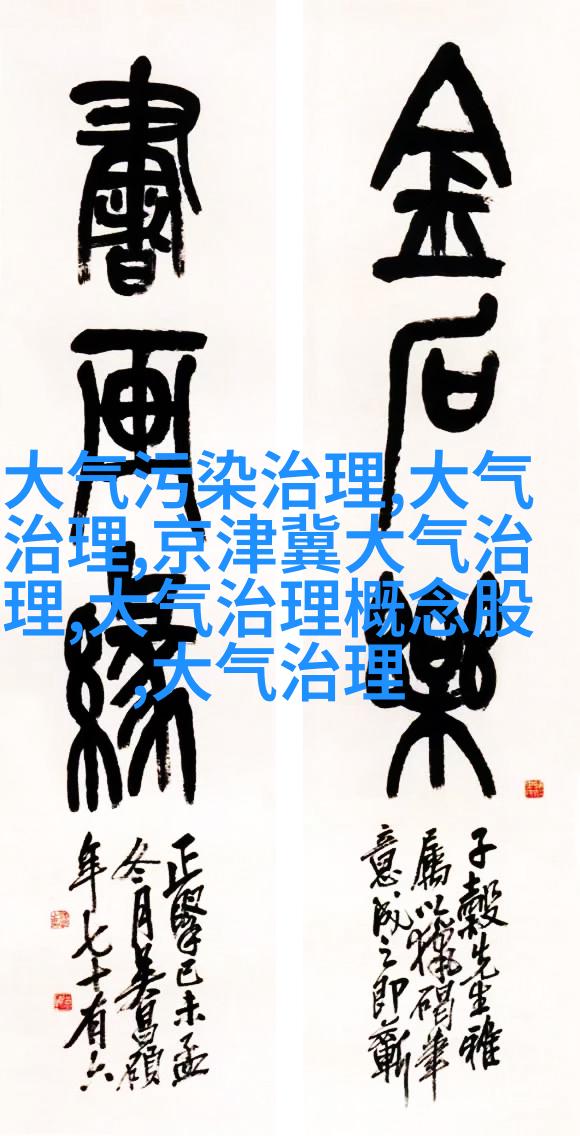 金石樂
子穀先生雅
屬以獵碣筆
意成之即蘄
書畫緣
正 己未孟
冬月吳昌碩
年七十有六
大气污染治理,大气
治理,京津冀大气治
理,大气治理概念股
,大气治理